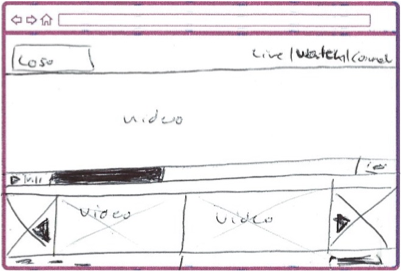 Logo Live | Watch | Connect
video
video video